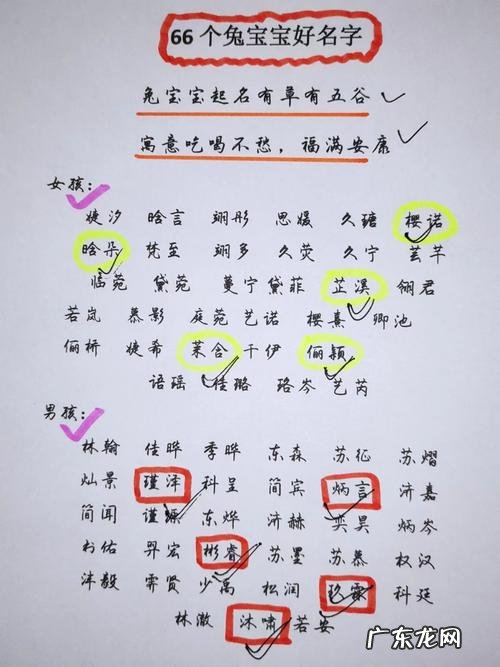 66个兔宝宝好名字
兔宝宝起名有草有五谷
寓意吃喝不愁，福满安康
女孩：
婕汐 晗言 翊彤 思媛 久瑭 樱诺
晗朵 梵至 翊多 久荧 久宁 芸芊
临菀 黛菀 蔓宁 黛菲 芷溪 翎君
若岚 慕影 庭菀 艺诺 樱熹 卿池
俪桥 婕希 茉含 千伊 俪颖
语瑶 佳璐 珞岑 艺芮
男孩：
林翰 佳晔 季晔 东森 苏征 苏熠
灿景 瑾泽 科呈 简宾 炳言 济嘉
简闻 谨源 东烨 济赫 奕昊 炳岑
佑 羿宏 彬睿 苏墨 苏慕 权汉
沣毅 霁贤 少禹 松润 玖霖 科廷
林澈 沐啸 若安
广东龙网